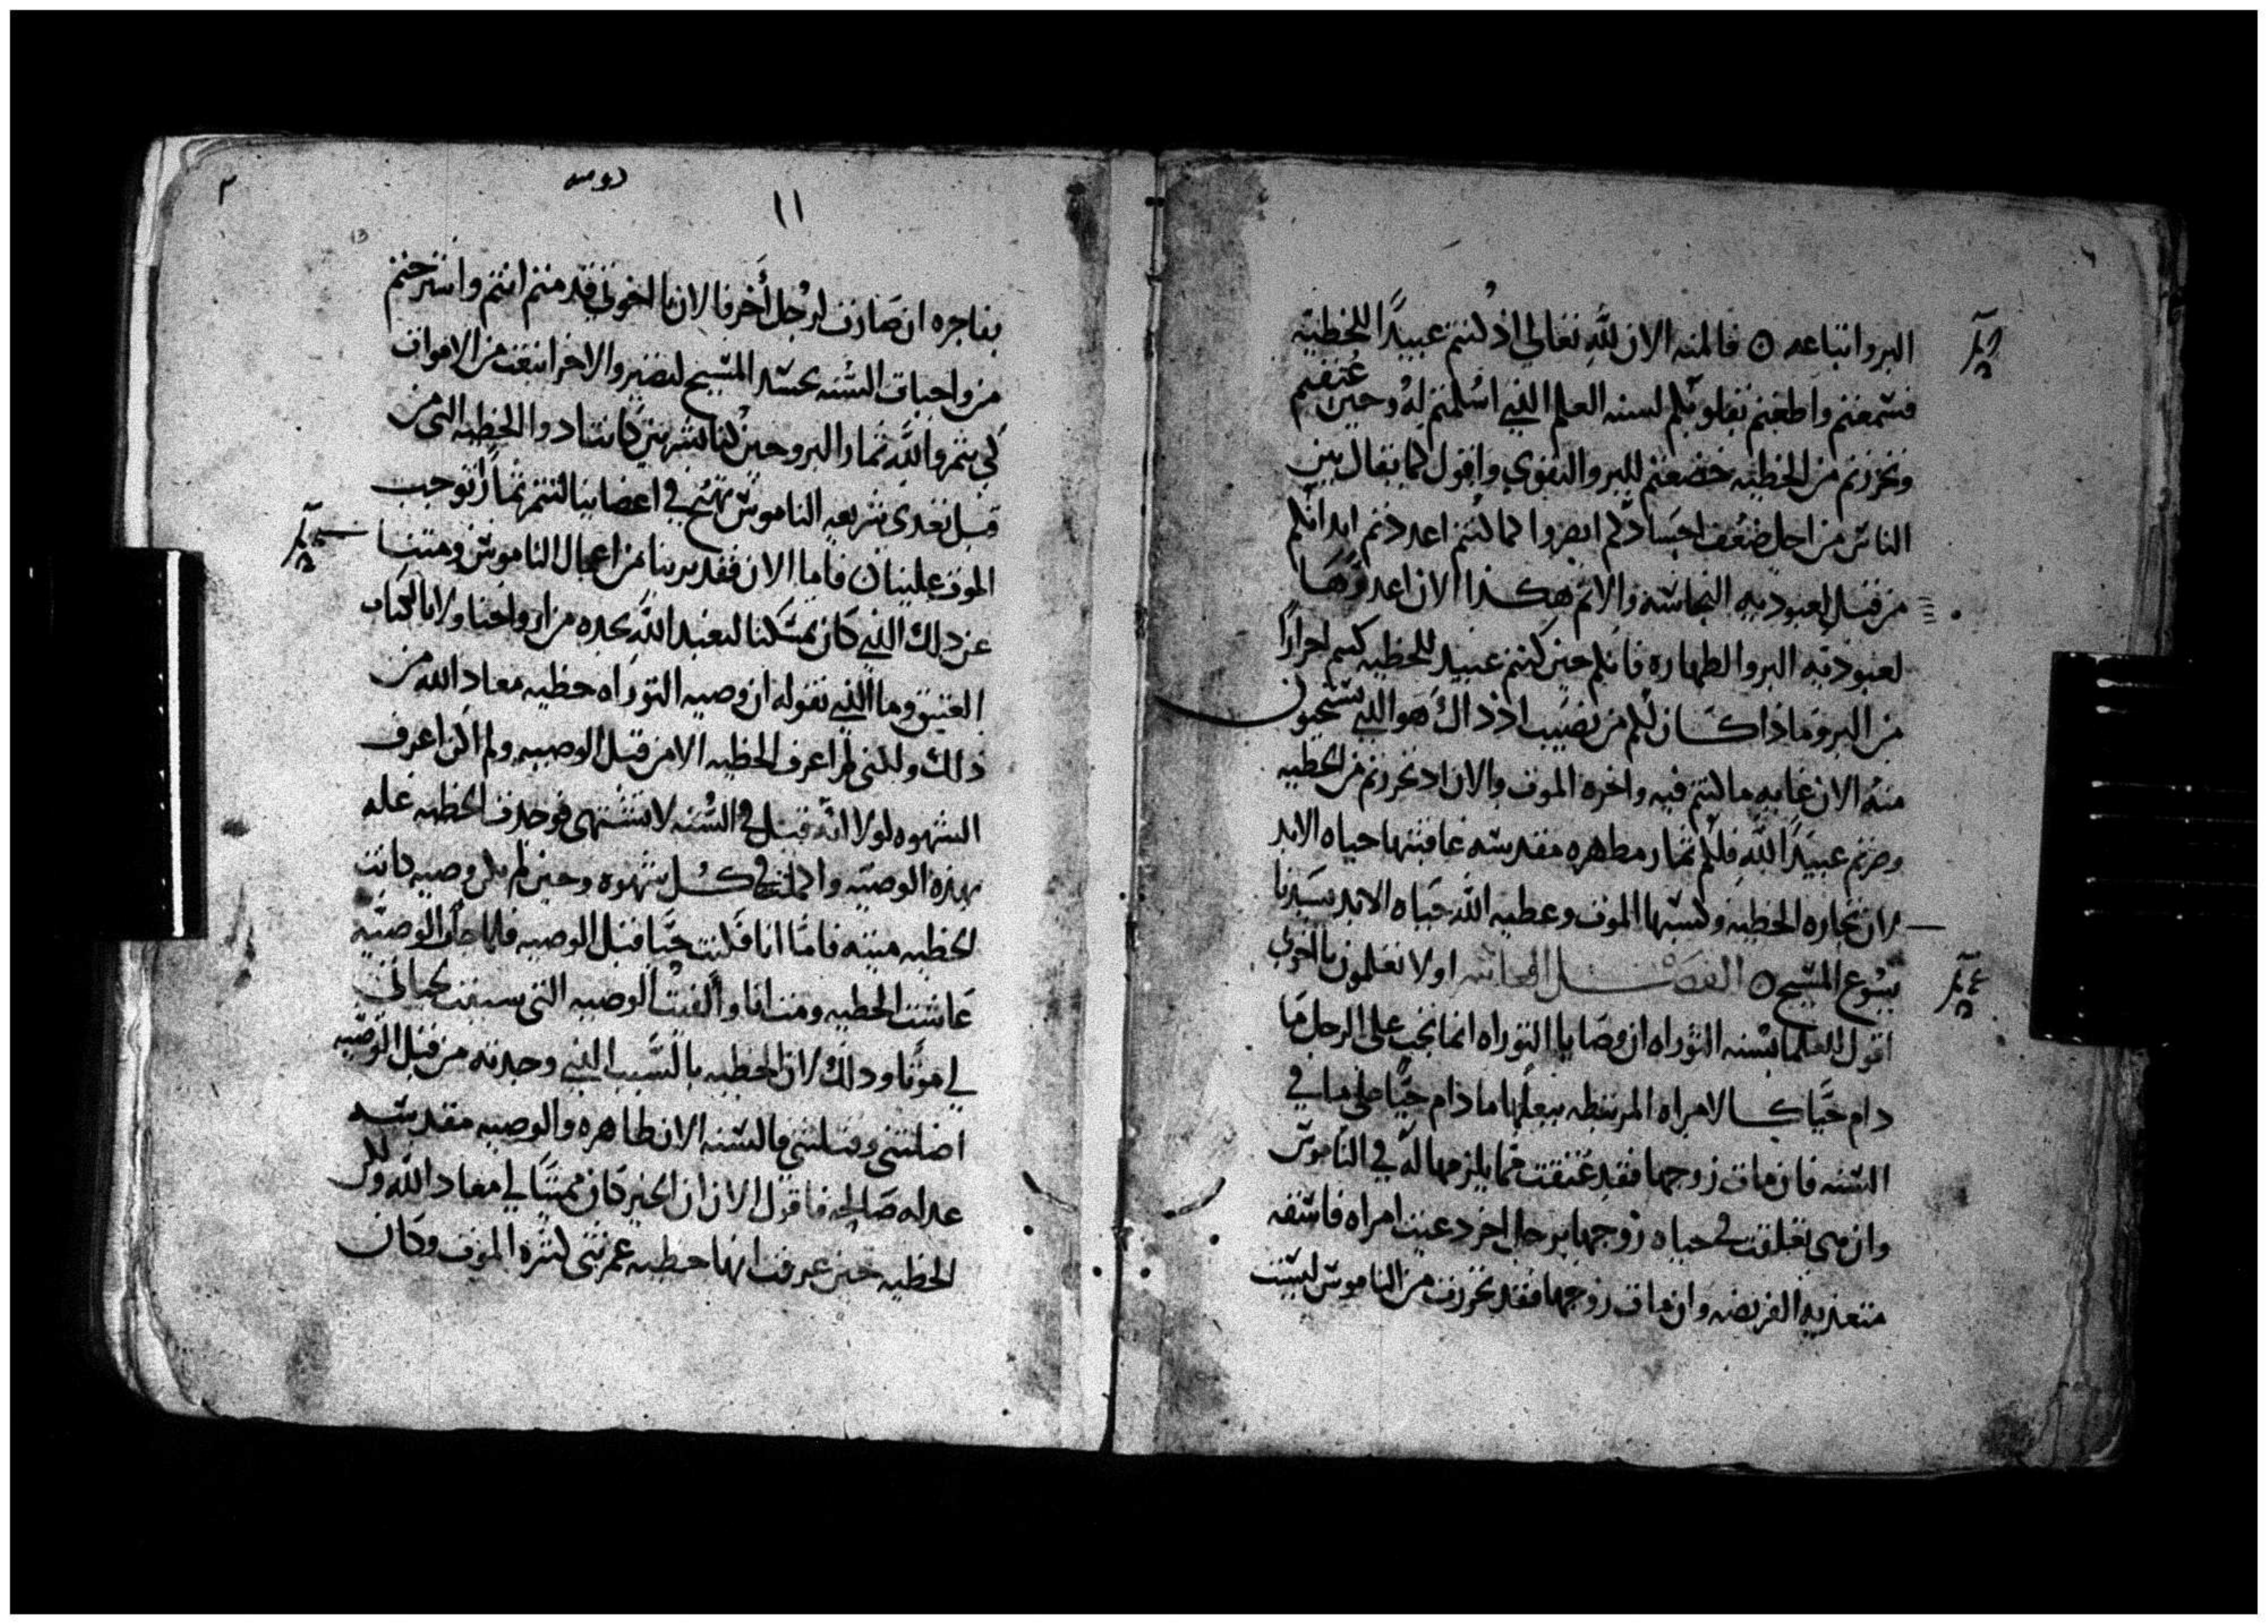 البر واتباعه ۞ فالمنه الان لله تعالي اذ كنتم عبيدًا للخطيه
فسمعتم واطعتم بقلوبكم لسنه العلم الذي اسلمتم له وحين عتقتم
وتحررتم من الخطيه خضعتم للبر والتقوي واقول كما يقال بين
الناس من اجل ضعف اجسادكم انظروا كما كنتم اعددتم ابدانكم
من قبل لعبوديه النجاسه والاثم هكذا الان اعدوها
لعبوديه البر والطهاره فانكم حين كنتم عبيد للخطيه كنتم احرارًا
من البر وماذا كان لكم من نصيب اذ ذاك هو الذي تستحيون
منه الان غايه ما كنتم فيه واخره الموت والان اذ تحررتم من الخطيه
وصرتم عبيدًا لله فلكم ثمار مطهره مقدسه عاقبتها حياه الابد
لان تجاره الخطيه وكسبها الموت وعطيه الله حياه الابد بسيدنا
يسوع المسيح ۞ الفصل الخامس اولا تعلمون يا اخوتي
اقول لعلما بسنه التوراه ان وصايا التوراه انما تجب على الرجل ما
دام حيًا كالامراه المرتبطه ببعلها ما دام حيًا على ما في
السنه فان مات زوجها فقد عتقت مما يلزمها له في الناموس
وان هي تعلقت في حياه زوجها برجل اخر دعيت امراه فاسقه
متعديه الفريضه وان مات زوجها فقد تحررت من الناموس ليست
١١
بفاجره ان صارت لرجل أخر فالان يا اخوتي قد متم انتم واسترحتم
من واجبات السنه بجسد المسيح لتصيروا لاخر انبعث من الاموات
كي تثمروا لله ثمار البر وحين كنا بشريين كانت ادوا الخطيه التي من
قبل تعدي شريعه الناموس تهيج في اعضاينا لنثمر ثمارًا توجب
الموت علينا ۞ فاما الان فقد برينا من اعمال الناموس ومتنا
عن ذلك الذي كان يمسكنا لنعبد الله بجده من ارواحنا ولا بالكتاب
العتيق وما الذي نقوله ان وصيه التوراه خطيه معاد الله من
ذلك ولكني لم اعرف الخطيه الا من قبل الوصيه ولم اكن اعرف
الشهوه لولا انه قيل في السنه لا تشتهي فوجدت الخطيه عله
بهذه الوصيه واكملت في كل شهوه وحين لم تكن وصيه كانت
الخطيه ميته فاما انا فكنت حيًا قبل الوصيه فلما جأت الوصيه
عاشت الخطيه ومت انا وألفيت الوصيه التي سببت لحياتي
لي موتًا وذلك لان الخطيه بالسبب الذي وجدته من قبل الوصيه
اضلتني وقتلتني فالسنه الان طاهره والوصيه مقدسه
عدله صالحه فاقول الان ان الخير كان مميتًا لي معاد الله ولكن
الخطيه حين عرفت انها خطيه غمرتني لثمره الموت وكان